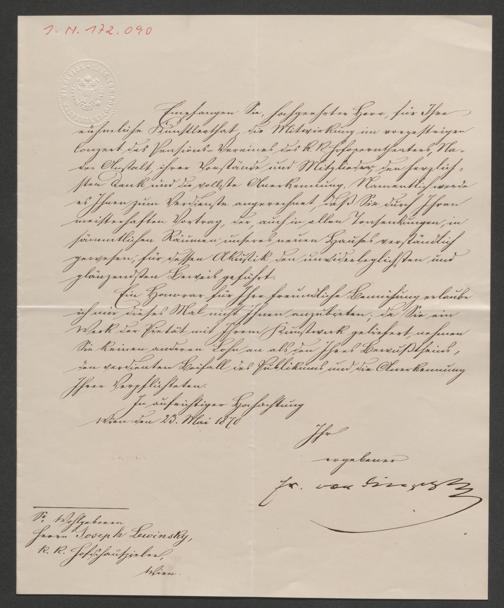 I. N. 172.090
Empfangen Sie, hochgeehrter Herr, für Ihre
rühmliche Künstlerthat, die Mitwirkung im vorgestrigen
Concert des Pensions-Vereines des k. k. Hofoperntheaters, Na-
der Anstalt, ihrer Vorstände und Mitglieder den herzlich-
sten Dank und die vollste Anerkennung. Namentlich werde
es Ihnen zum Verdienste angerechnet, daß Sie durch Ihren
meisterhaften Vortrag, der auch in allen Tonsenkungen, in
sämmtlichen Räumen unseres neuen Hauses verständlich
gewesen, für dessen Akustik den unwiderleglichsten und
glänzendsten Beweis geführt.
Ein Honorar für Ihre freundliche Bemühung erlaube
ich mir dieses Mal nicht Ihnen anzubieten; da Sie ein
Werk der Pietät mit Ihrem Kunstwerk geliefert nehmen
Sie keinen andern Lohn an als den Ihres Bewußtseins,
den verdienten Beifall des Publikums und die Anerkennung
Ihrer Verpflichteten.
In aufrichtiger Hochachtung
Wien den 23. Mai 1870
Ihr
ergebener
Fr. von
Sr. Wohlgeboren
Herrn Joseph Lewinsky,
k. k. Hofschauspieler,
Wien.